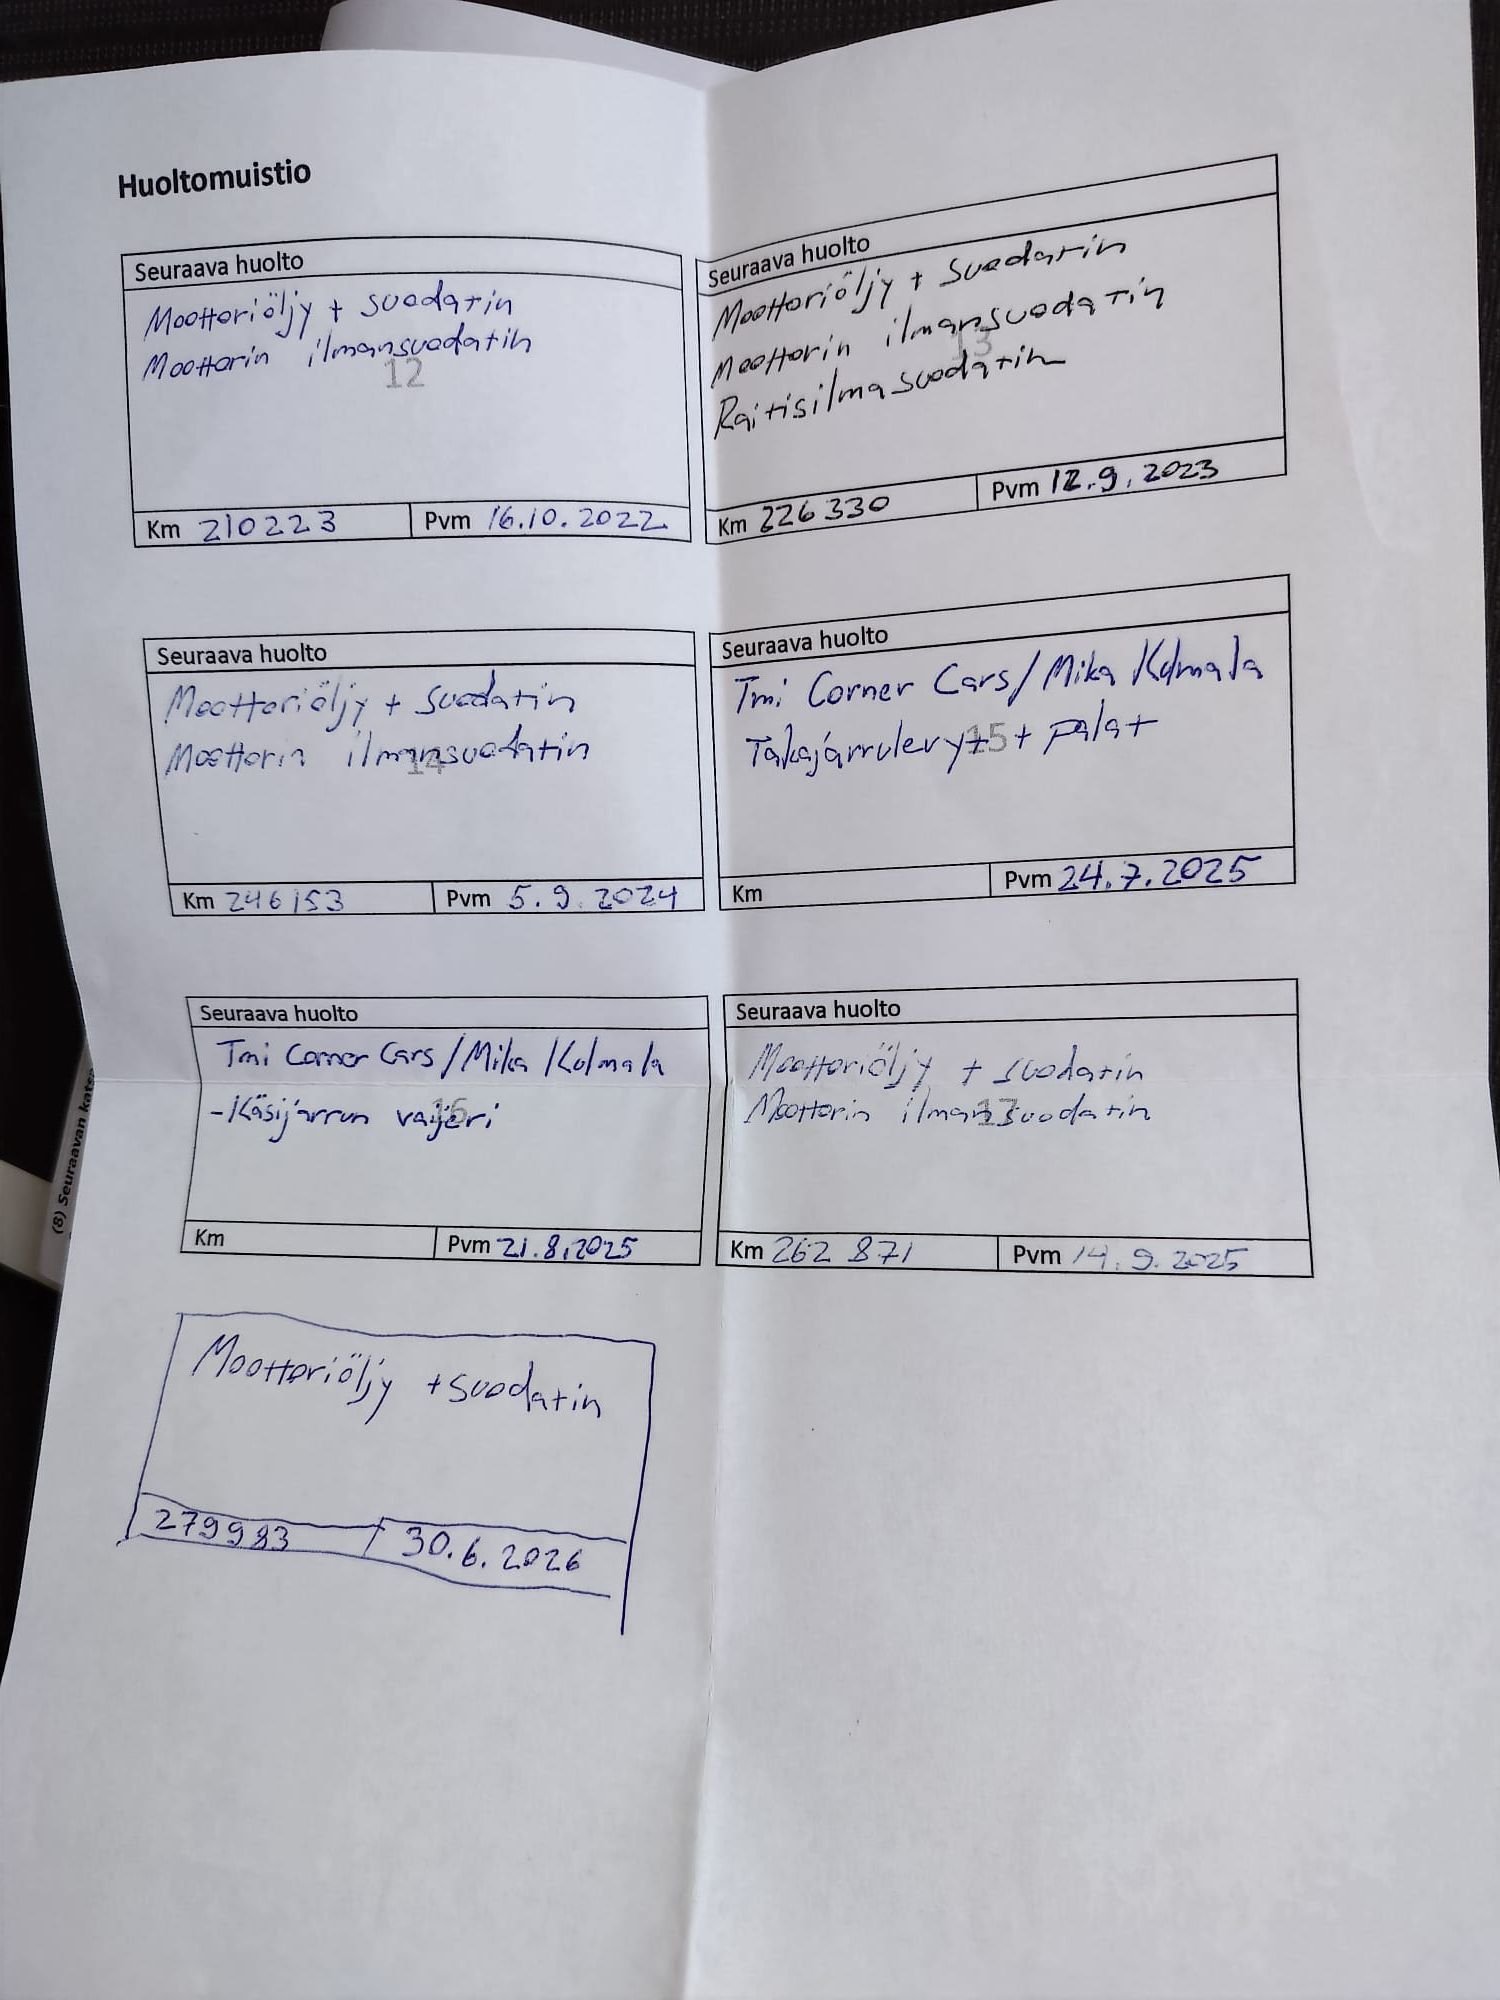 Huoltomuistio
Seuraava huolto
Moottoriöljy + suodatin
Moottorin ilmansuodatin
12
Km 210223 Pvm 16.10.2022
Seuraava huolto
Moottoriöljy + suodatin
Moottorin ilmansuodatin
13
Raitisilmasuodatin
Km 226330 Pvm 12.9.2023
Seuraava huolto
Moottoriöljy + suodatin
Moottorin ilmansuodatin
14
Km 246153 Pvm 5.9.2024
Seuraava huolto
Tmi Corner Cars/Mika Kolmala
Takajarrulevyt + palat
15
Km Pvm 24.7.2025
Seuraava huolto
Tmi Corner Cars/Mika Kolmala
-Käsijarrun vaijeri
16
Km Pvm 21.8.2025
Seuraava huolto
Moottoriöljy + suodatin
Moottorin ilmansuodatin
17
Km 262 871 Pvm 14.9.2025
Moottoriöljy +suodatin
279983 30.6.2026
(8) Seuraavan